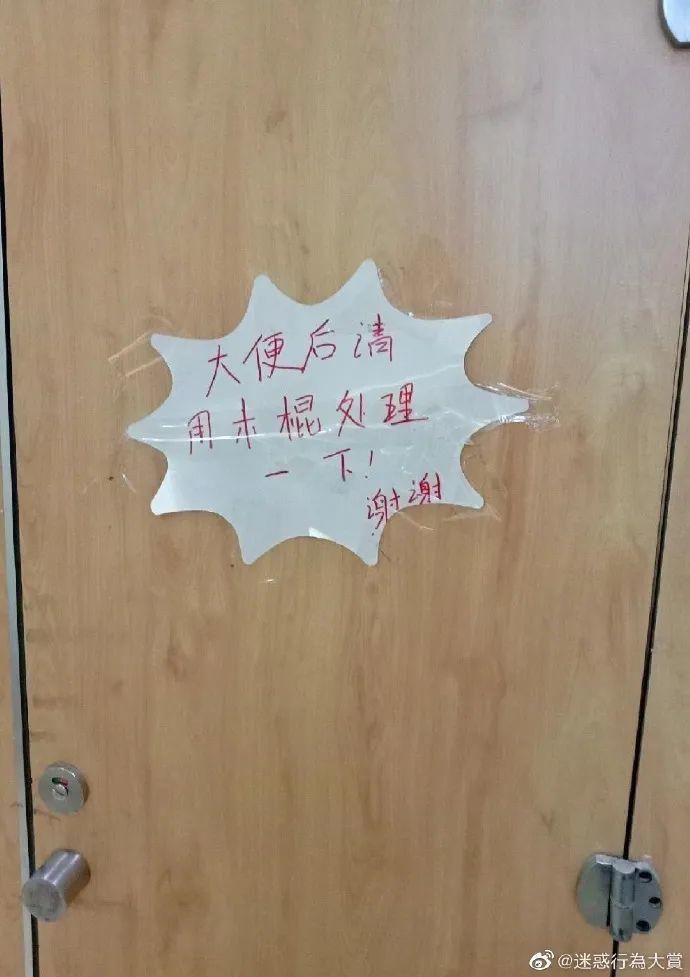 大便后清
用木棍处理
一下!
谢谢
@迷惑行為大賞